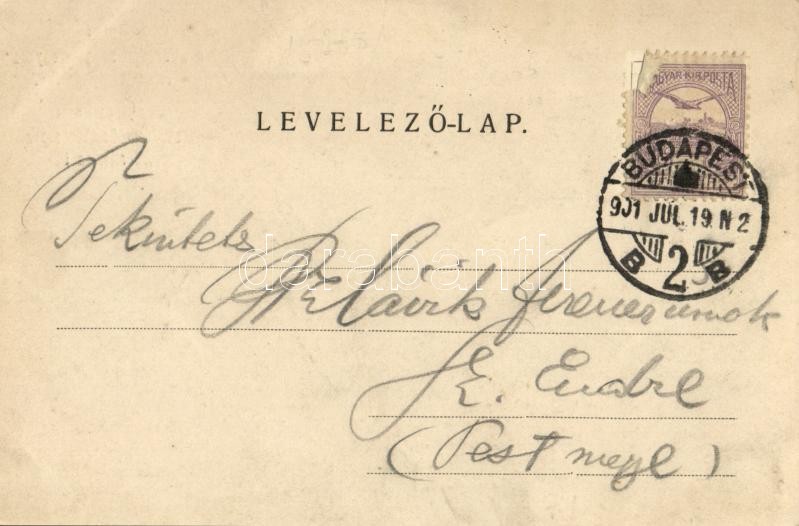 LEVELEZŐ-LAP.
MAGYAR KIR. POSTA
BUDAPEST
901 JUL. 19. N 2
B 2 B
Tekintetes
Ferencz urnak
Sz. Endre
(Pest megye)
darabanth